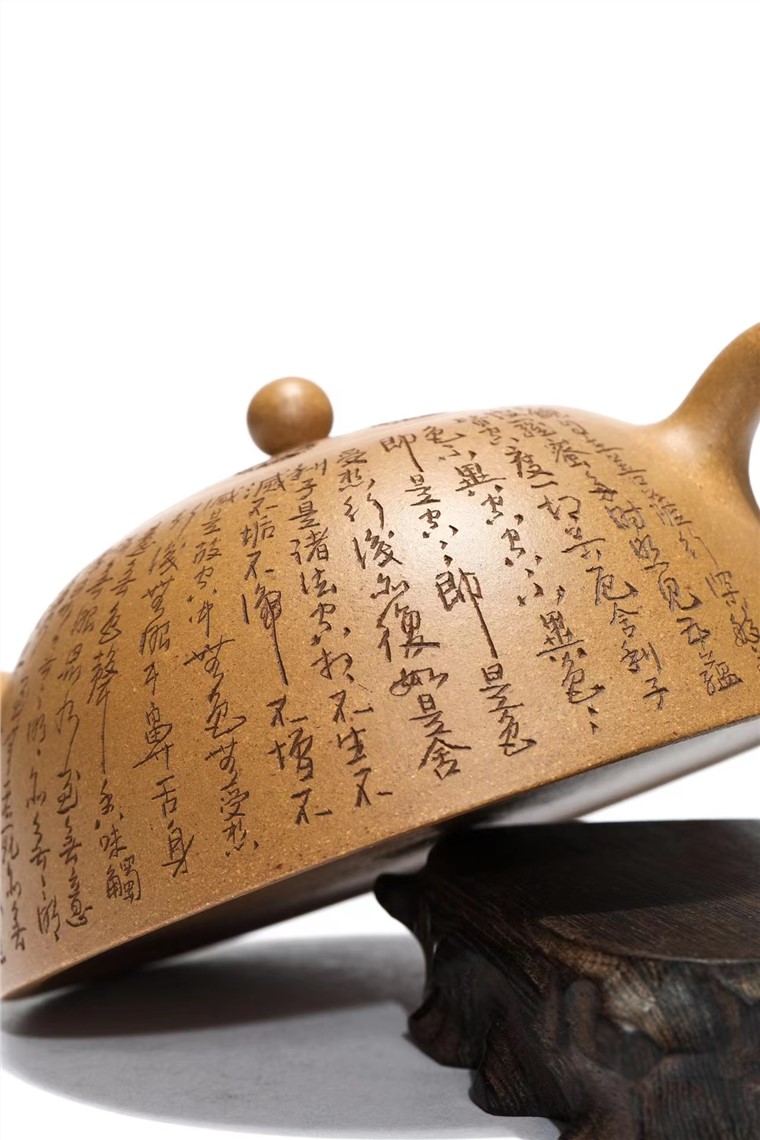 菩薩行深般
羅蜜多時照見五蘊
皆空度一切苦厄舍利子
色不異空空不異色〻
即是空〻即是色
受想行識亦復如是舍
利子是諸法空相不生不
滅不垢不淨不增不
減是故空中無色無受想
行識無眼耳鼻舌身
意無色聲香味觸
無眼界乃至無意
無〻明〻亦無〻明
至無老死亦無